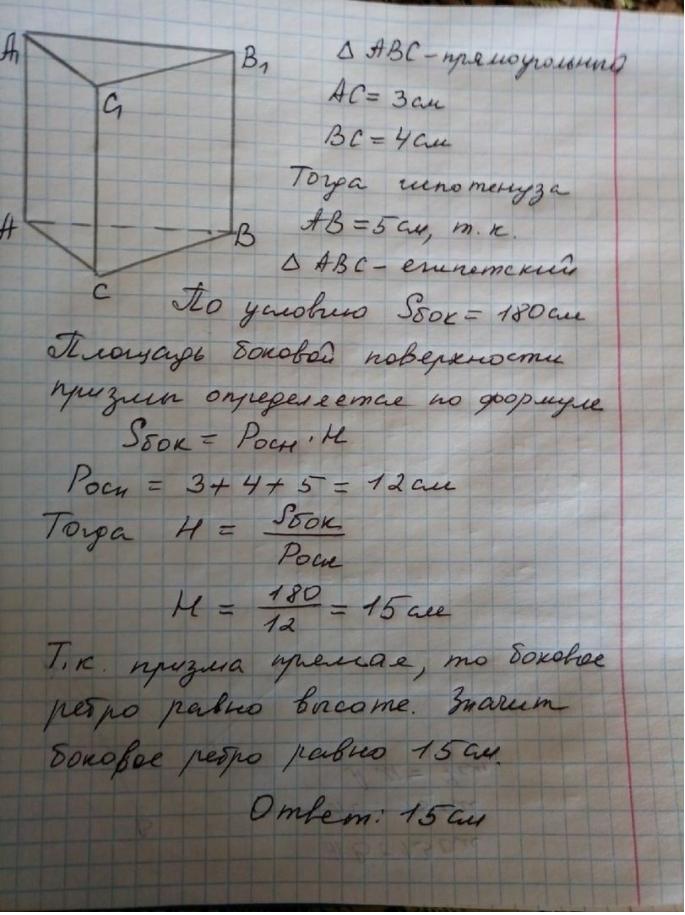 A₁
B₁
C₁
A
B
C
△ ABC – прямоугольный
AC = 3 см
BC = 4 см
Тогда гипотенуза
AB = 5 см, т.к.
△ ABC – египетский
По условию Sбок = 180 см
Площадь боковой поверхности
призмы определяется по формуле
Sбок = Pосн · H
Pосн = 3 + 4 + 5 = 12 см
Тогда H = Sбок / Pосн
H = 180 / 12 = 15 см
Т.к. призма прямая, то боковое
ребро равно высоте. Значит
боковое ребро равно 15 см.
Ответ: 15 см